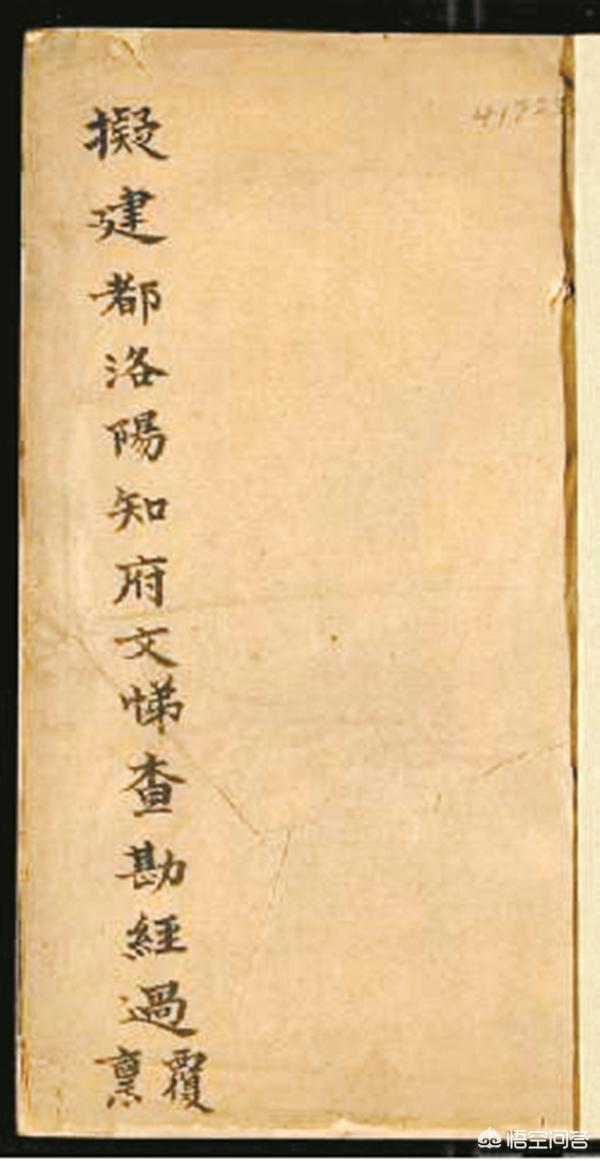 擬建都洛陽知府文悌查勘經過
覆稟
悟空问答